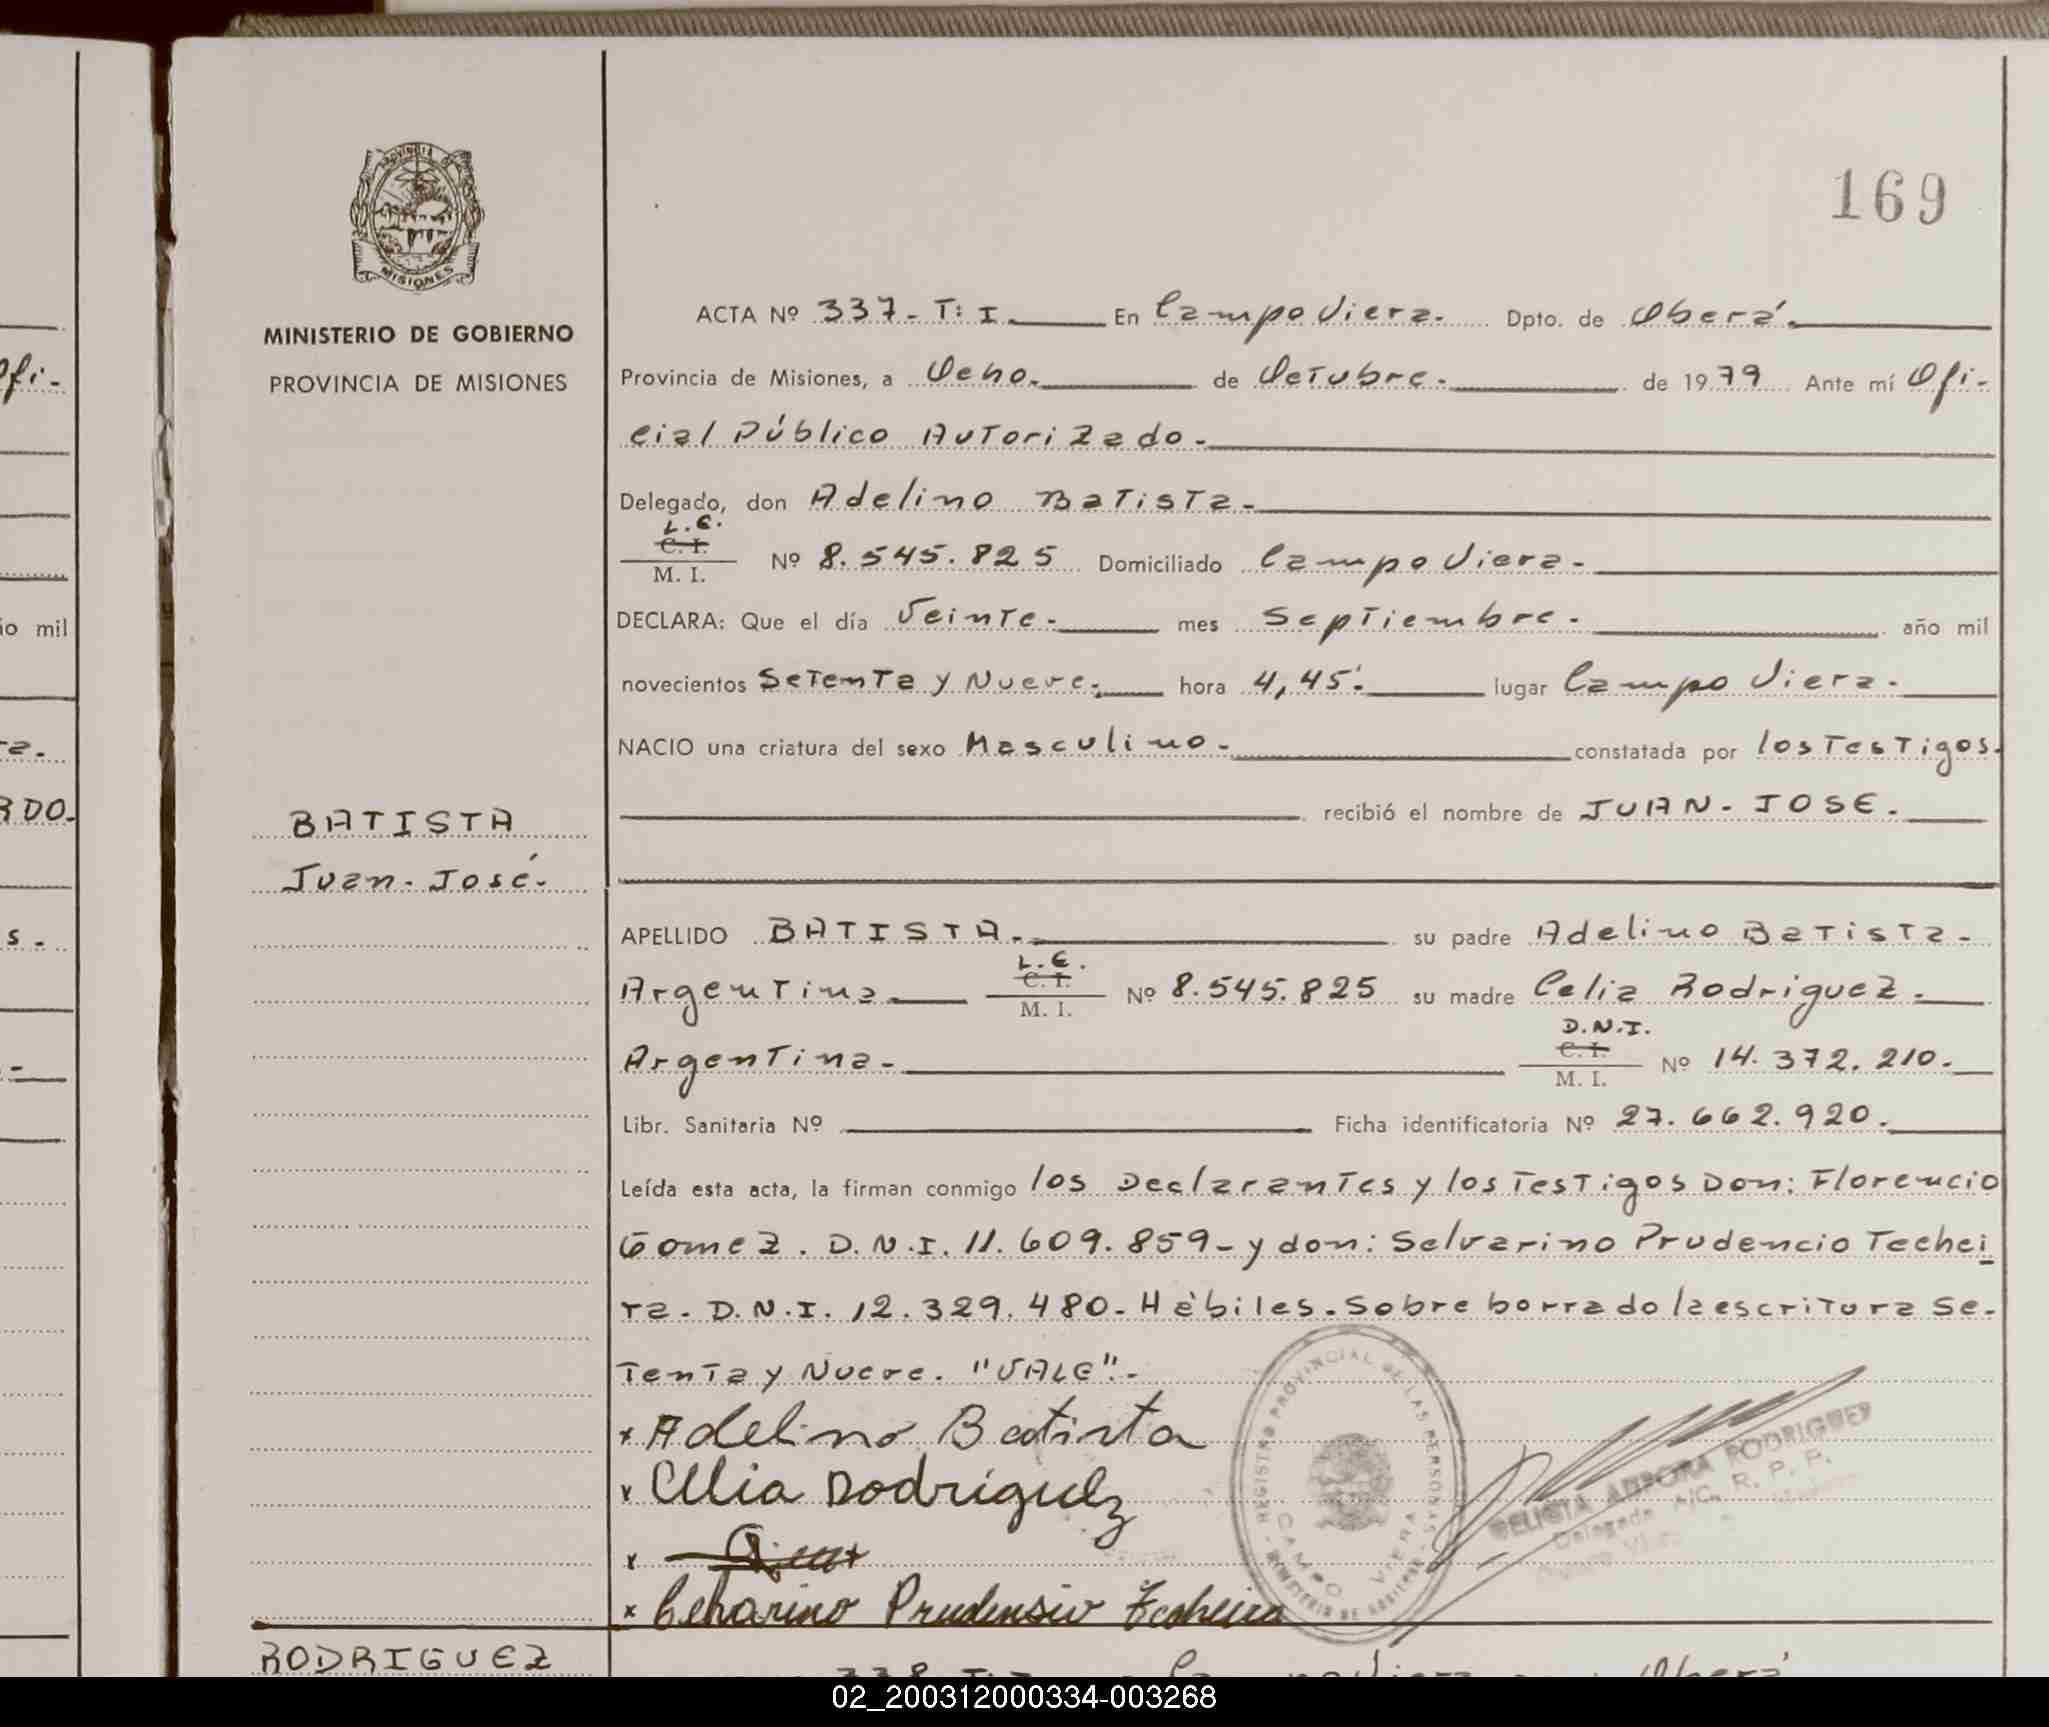 169
PROVINCIA DE
MISIONES
MINISTERIO DE GOBIERNO
PROVINCIA DE MISIONES
ACTA Nº 337.- T: I. En Campo Viera. Dpto. de Oberá.
Provincia de Misiones, a Ocho. de Octubre. de 1979 Ante mí Ofi-
cial Público Autorizado.
Delegado, don Adelino Batista.
L.E.
C. I.
M. I.
Nº 8.545.825 Domiciliado Campo Viera.
DECLARA: Que el día Veinte. mes Septiembre. año mil
novecientos Setenta y Nueve. hora 4,45. lugar Campo Viera.
NACIO una criatura del sexo Masculino. constatada por los Testigos.
recibió el nombre de JUAN - JOSE.
BATISTA
Juan - José.
APELLIDO BATISTA. su padre Adelino Batista.
Argentina L.E. C. I. M. I. Nº 8.545.825 su madre Celia Rodriguez.
Argentina. D.N.I. C. I. M. I. Nº 14.372.210.
Libr. Sanitaria Nº Ficha identificatoria Nº 27.662.920.
Leída esta acta, la firman conmigo los Declarantes y los Testigos Don: Florencio
Gomez. D.N.I. 11.609.859 - y don: Selvarino Prudencio Techei
ra. D.N.I. 12.329.480. Hábiles. Sobre borrado la escritura Se-
tenta y Nueve. "VALE".
x Adelino Batista
x Celia Rodriguez
x
x Celvarino Prudensio Techeira
REGISTRO PROVINCIAL DE LAS PERSONAS
CAMPO VIERA
MINISTERIO DE GOBIERNO
AURORA RODRIGUEZ
Delegada A/C. R. P. P.
RODRIGUEZ
338 Campo Viera Oberá
Ofi-
ño mil
ra.
RDO.
s.
02_200312000334-003268